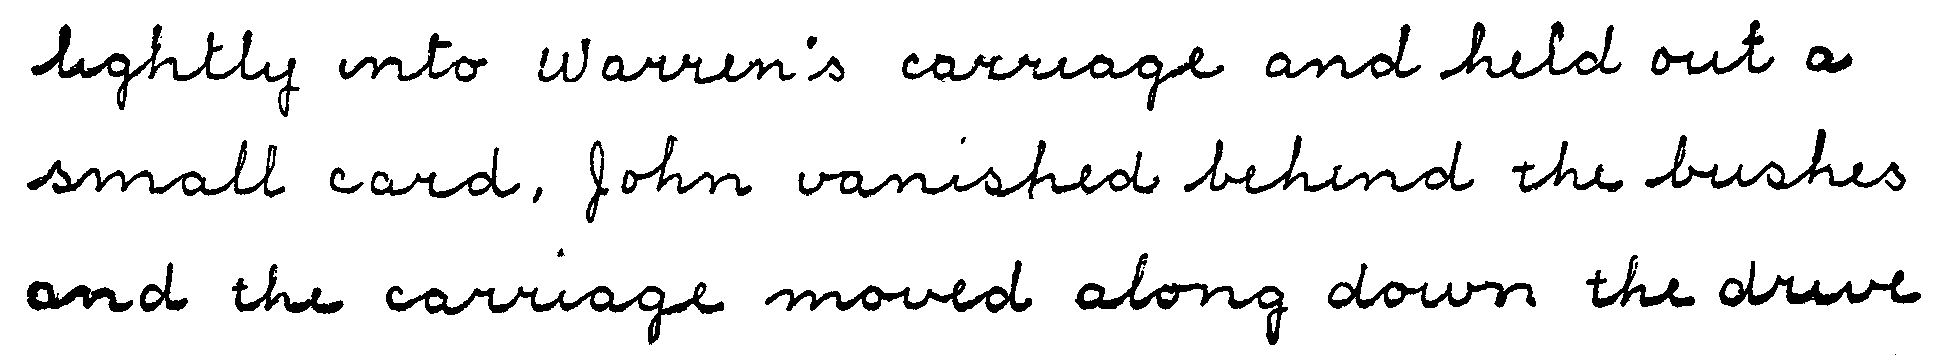 lightly into Warren's carriage and held out a
small card, John vanished behind the bushes
and the carriage moved along down the drive